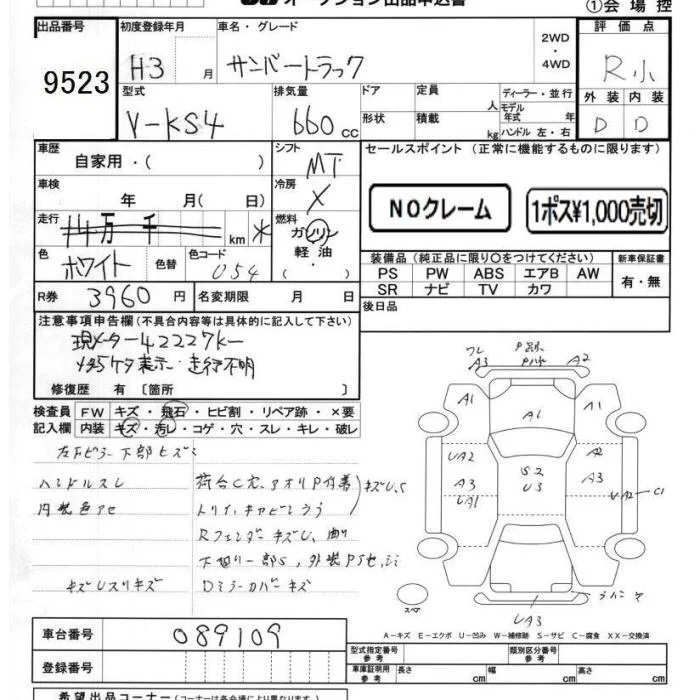 オークション出品申込書
①会場控
出品番号 9523
初度登録年月 H3 月
車名・グレード サンバートラック
2WD・4WD
評価点 R小
外装 内装
D D
型式 V-KS4
排気量 660cc
ドア 定員 人
形状 積載 kg
ディーラー・並行
モデル年式 年
ハンドル 左・右
車歴 自家用・( )
シフト MT
車検 年 月( 日)
冷房 X
走行 万 千 km
燃料 ガソリン 軽油 ( ・ )
色 ホワイト 色替 色コード 054
R券 3960円 名変期限 月 日
セールスポイント (正常に機能するものに限ります)
NOクレーム
1ポス¥1,000売切
装備品(純正品に限り○をつけてください) 新車保証書
PS PW ABS エアB AW 有・無
SR ナビ TV カワ
後日品
注意事項申告欄(不具合内容等は具体的に記入して下さい)
現メーター42227km
メーター5ケタ表示・走行不明
修復歴 有 〔箇所 〕
検査員 FW キズ・飛石・ヒビ割・リペア跡・×要
記入欄 内装 キズ・汚レ・コゲ・穴・スレ・キレ・破レ
左下ピラー下部ヒズミ
ハンドルスレ
内装色アセ
キズUスリキズ
RフェンダーキズU、曲り
下廻り一部S,外装PSセ
Dミラーカバーキズ
フレ
A3 A2
A1 A1 A1
UA2 S2 A2
A3 U3 A3
UA1 UA2 C1
スペア
UA3
A-キズ E-エクボ U-凹み W-補修跡 S-サビ C-腐食 XX-交換済
車台番号 089109
登録番号
型式指定番号 参考 類別区分番号 参考
車庫証明用 参考 長さ cm 幅 cm 高さ cm
希望出品コーナー(コーナーは各会場により異なります。)